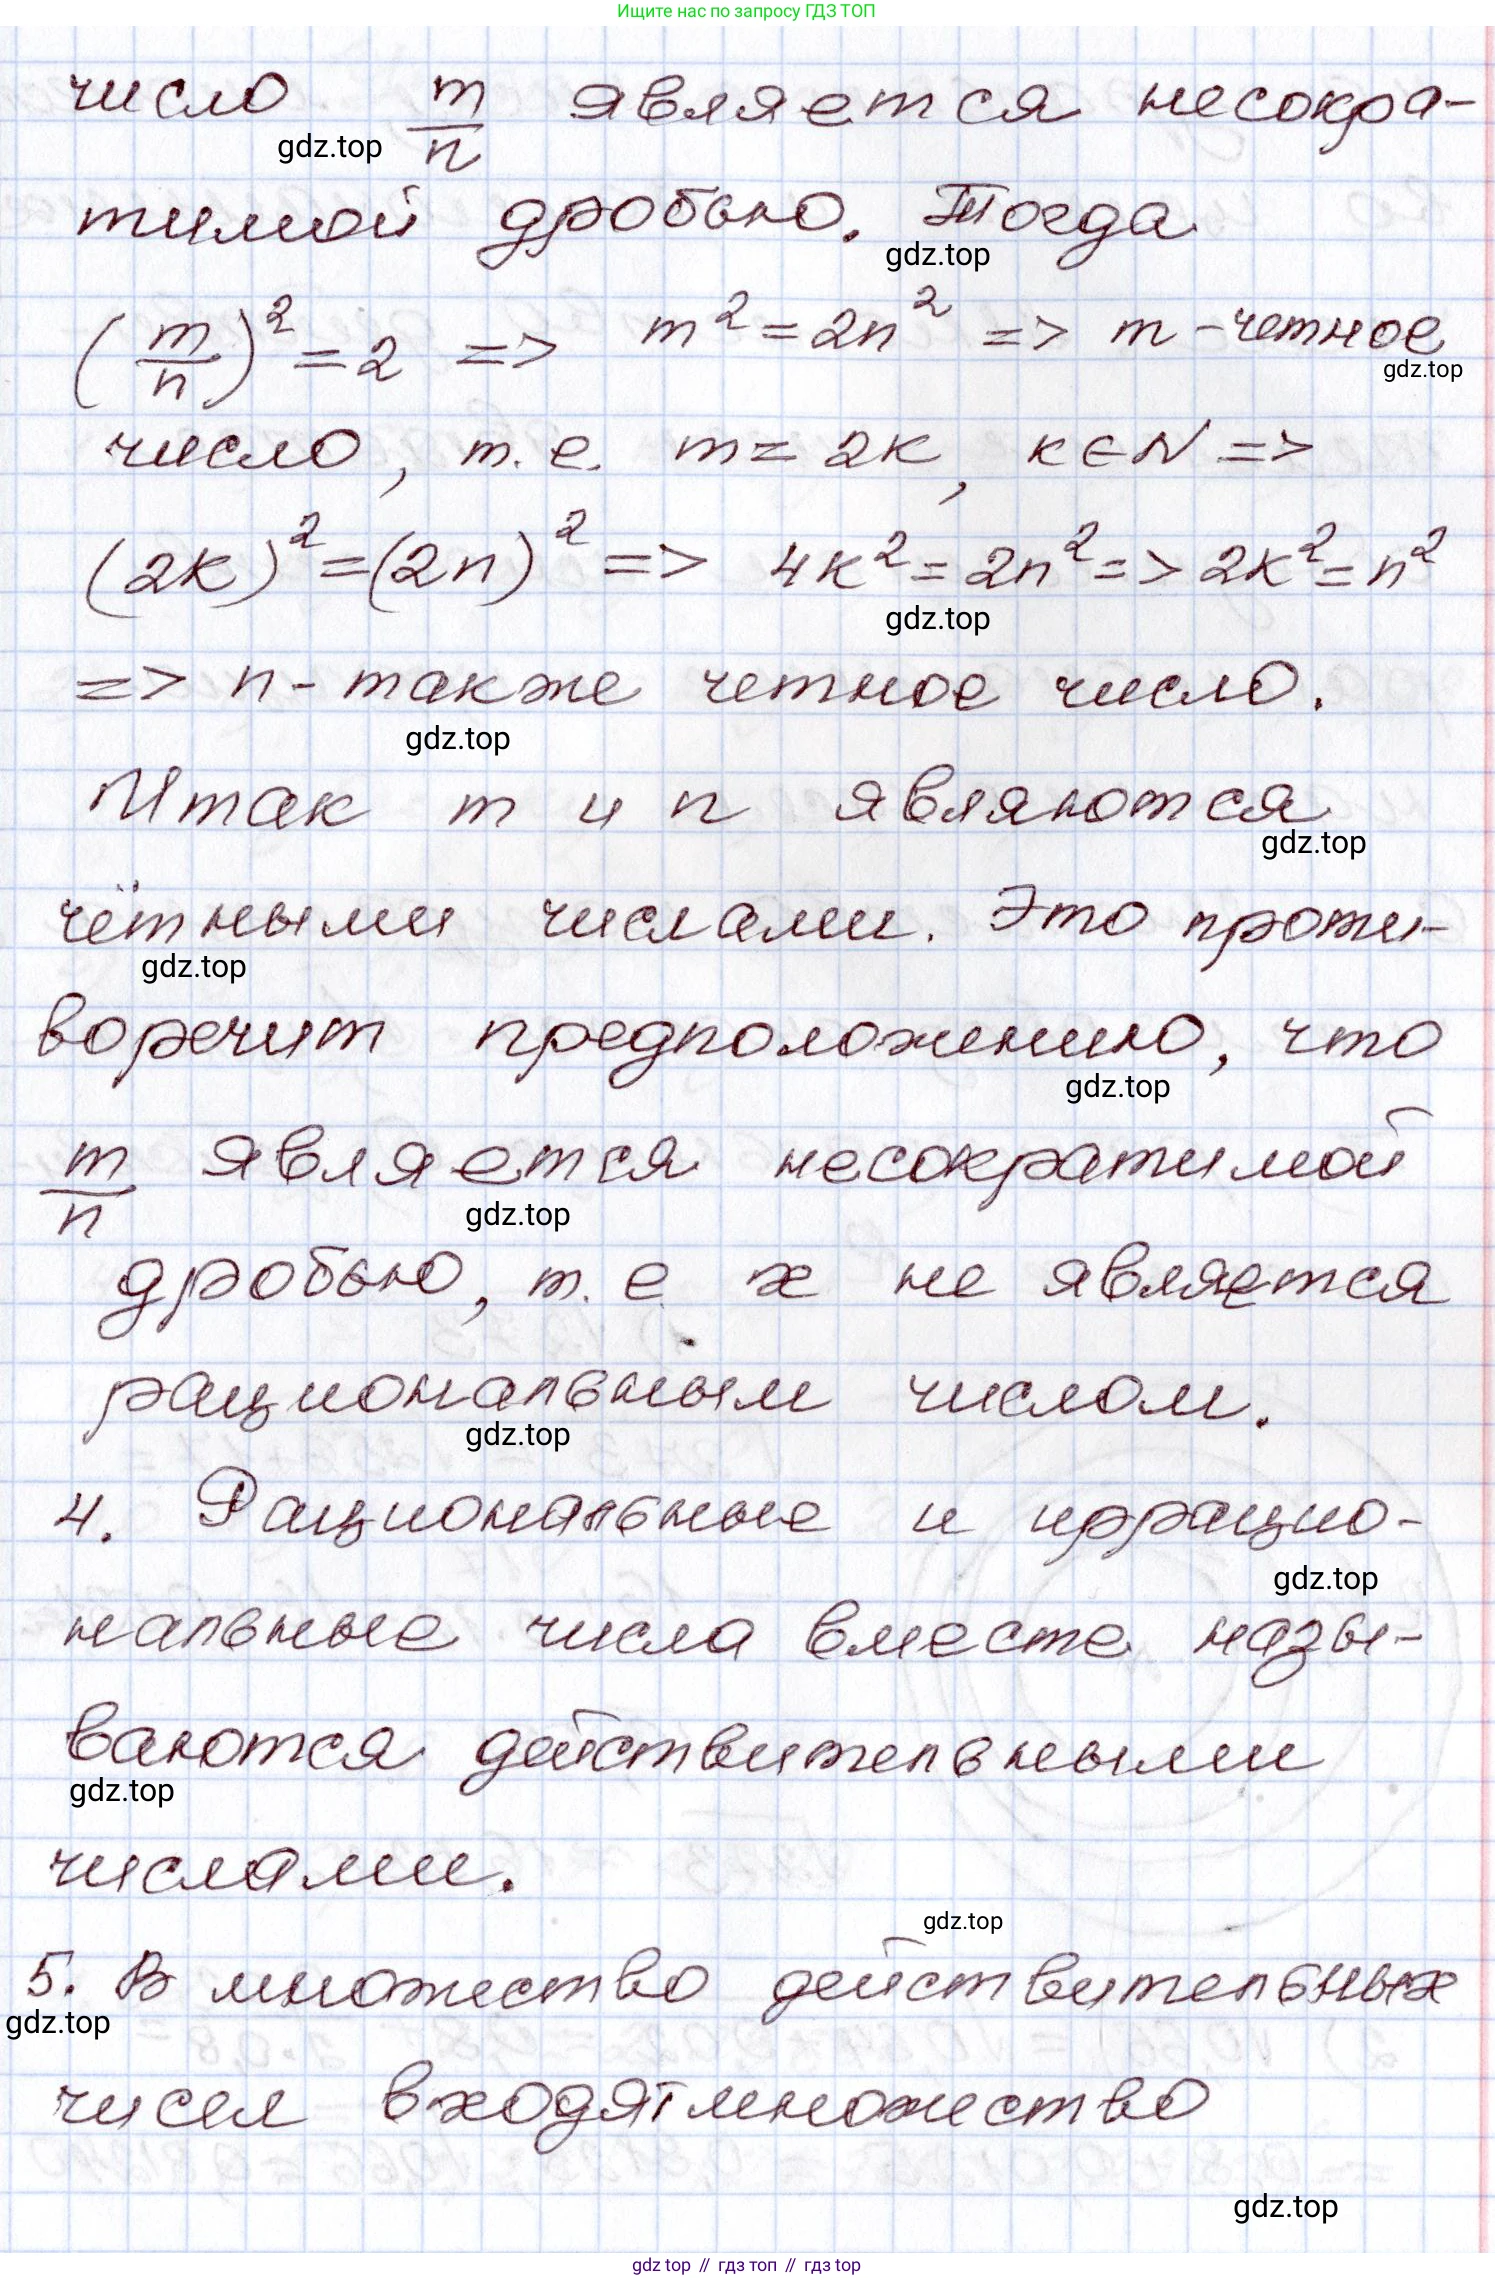 Ищите нас по запросу ГДЗ ТОП
число m/n является несокра-
gdz.top
тимой дробью. Тогда
gdz.top
(m/n)² = 2 => m² = 2n² => m - четное
gdz.top
число, т.е. m = 2k, k ∈ N =>
(2k)² = (2n)² => 4k² = 2n² => 2k² = n²
gdz.top
=> n - также четное число.
gdz.top
Итак m и n являются
gdz.top
чётными числами. Это проти-
gdz.top
воречит предположению, что
gdz.top
m/n является несократимой
gdz.top
дробью, т.е x не является
рациональным числом.
gdz.top
4. Рациональные и иррацио-
gdz.top
нальные числа вместе назы-
ваются действительными
gdz.top
числами.
gdz.top
5. В множество действительных
gdz.top
чисел входят множество
gdz.top
gdz top // гдз топ // гдз top